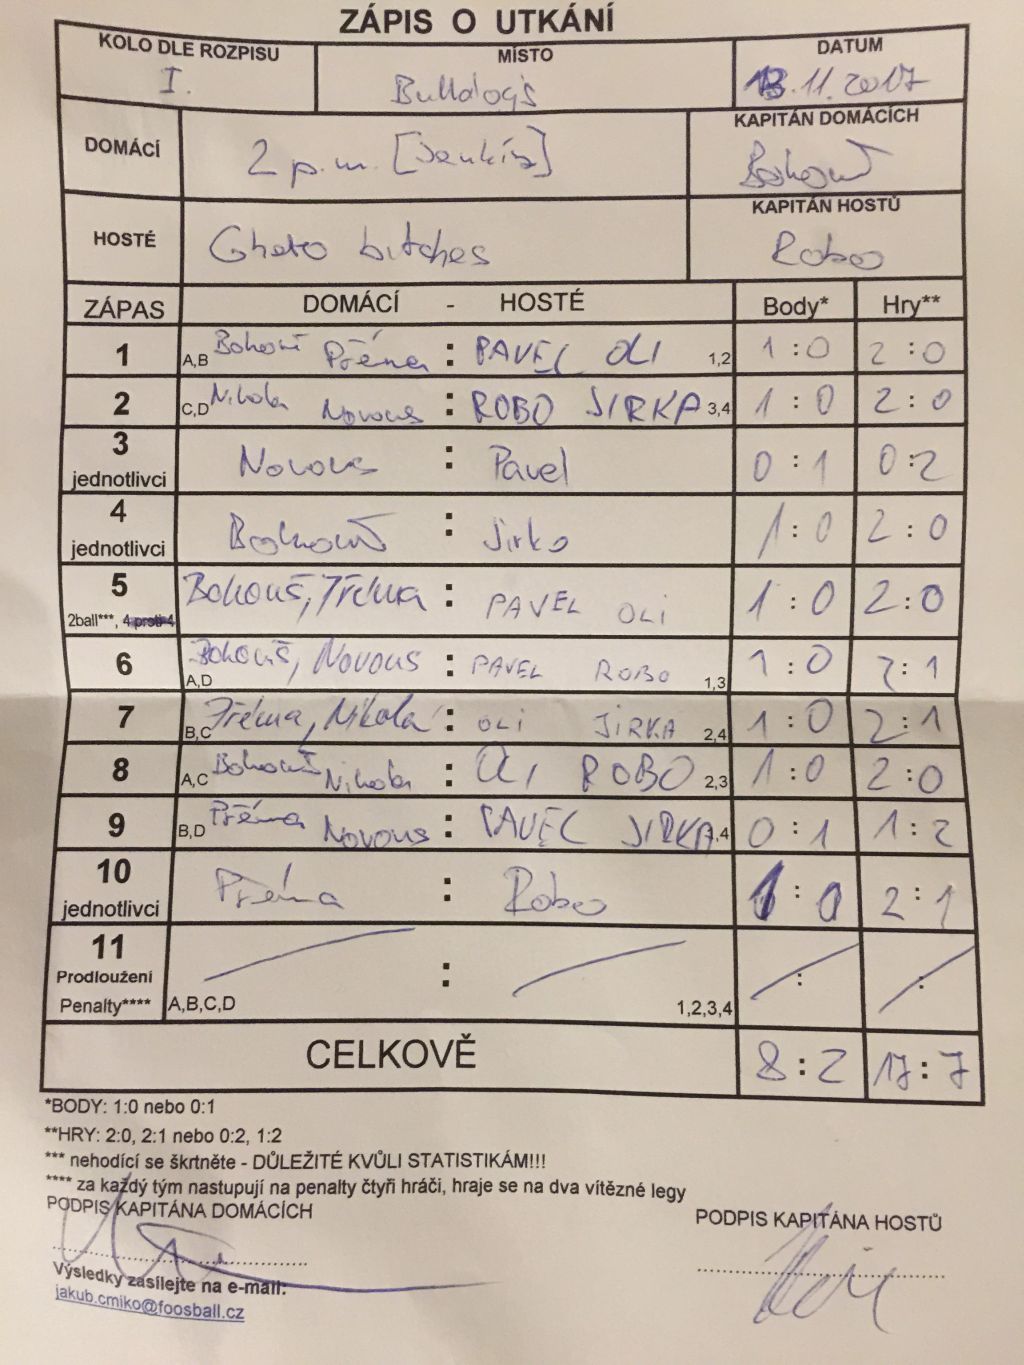 ZÁPIS O UTKÁNÍ
KOLO DLE ROZPISU MÍSTO DATUM
I. Bulldogs 13.11.2017
DOMÁCÍ 2 p.m. KAPITÁN DOMÁCÍCH
Bohouš
HOSTÉ Gheto bitches KAPITÁN HOSTŮ
Robo
ZÁPAS DOMÁCÍ - HOSTÉ Body* Hry**
1 A,B Bohouš Přéma : PAVEL OLI 1,2 1:0 2:0
2 C,D Nikola Novous : ROBO JIRKA 3,4 1:0 2:0
3 jednotlivci Novous : Pavel 0:1 0:2
4 jednotlivci Bohouš : Jirka 1:0 2:0
5 2ball***, 4 proti 4 Bohouš, Přéma : PAVEL OLI 1:0 2:0
6 A,D Bohouš, Novous : PAVEL ROBO 1,3 1:0 2:1
7 B,C Přéma, Nikola : OLI JIRKA 2,4 1:0 2:1
8 A,C Bohouš Nikola : OLI ROBO 2,3 1:0 2:0
9 B,D Přéma Novous : PAVEL JIRKA ,4 0:1 1:2
10 jednotlivci Přéma : Robo 1:0 2:1
11 : : :
Prodloužení
Penalty**** A,B,C,D 1,2,3,4
CELKOVĚ 8:2 17:7
*BODY: 1:0 nebo 0:1
**HRY: 2:0, 2:1 nebo 0:2, 1:2
*** nehodící se škrtněte - DŮLEŽITÉ KVŮLI STATISTIKÁM!!!
**** za každý tým nastupují na penalty čtyři hráči, hraje se na dva vítězné legy
PODPIS KAPITÁNA DOMÁCÍCH PODPIS KAPITÁNA HOSTŮ
Výsledky zasílejte na e-mail:
jakub.cmiko@foosball.cz